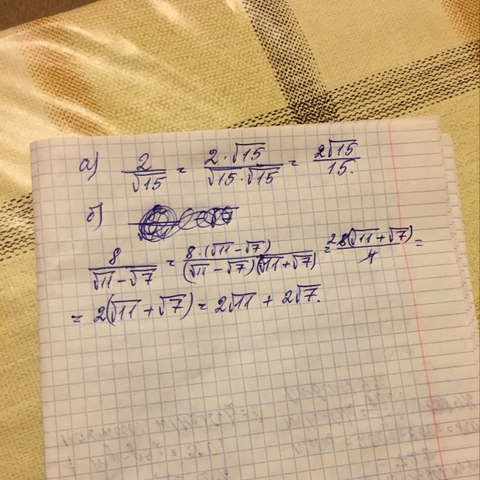 а) 2/√15 = 2·√15/√15·√15 = 2√15/15.
б)
8/√11-√7 = 8·(√11-√7)/(√11-√7)(√11+√7) = 2 8(√11+√7)/4 =
= 2(√11+√7) = 2√11+2√7.